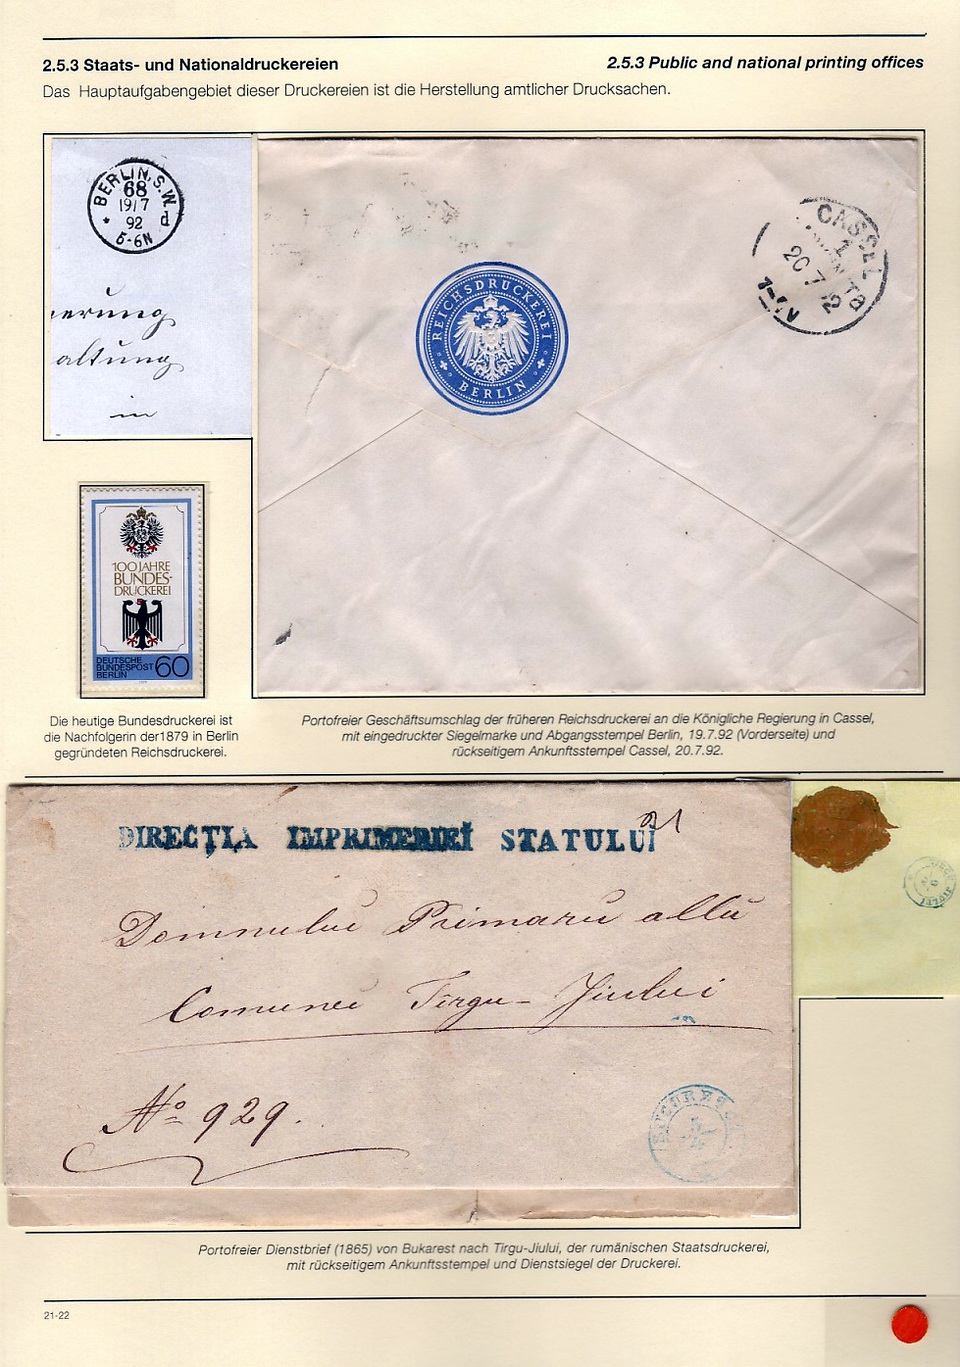 2.5.3 Staats- und Nationaldruckereien
2.5.3 Public and national printing offices
Das Hauptaufgabengebiet dieser Druckereien ist die Herstellung amtlicher Drucksachen.
BERLIN, S.W.
68
19/7
92
* 5-6N d
erung
altung
in
REICHSDRUCKEREI
BERLIN
CASSEL
1
20 7
100 JAHRE
BUNDES-
DRUCKEREI
DEUTSCHE
BUNDESPOST
BERLIN
60
Die heutige Bundesdruckerei ist
die Nachfolgerin der1879 in Berlin
gegründeten Reichsdruckerei.
Portofreier Geschäftsumschlag der früheren Reichsdruckerei an die Königliche Regierung in Cassel,
mit eingedruckter Siegelmarke und Abgangsstempel Berlin, 19.7.92 (Vorderseite) und
rückseitigem Ankunftsstempel Cassel, 20.7.92.
DIRECŢIA IMPRIMERIEĬ STATULUĬ
21
Domnului Primaru allu
Comunei Tirgu-Jiului
No 929.
Portofreier Dienstbrief (1865) von Bukarest nach Tirgu-Jiului, der rumänischen Staatsdruckerei,
mit rückseitigem Ankunftsstempel und Dienstsiegel der Druckerei.
21-22